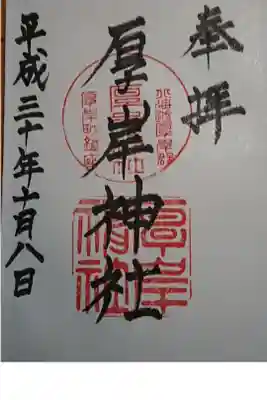 奉拝
北海道厚岸郡
厚岸神社
厚岸町鎮座
厚岸
神社
平成三十年十月八日